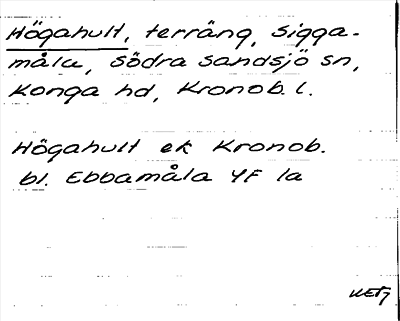 Högahult, terräng, Sigga-
måla, Södra Sandsjö sn,
Konga hd, Kronob. l.
Högahult ek Kronob.
bl. Ebbamåla YF 1a